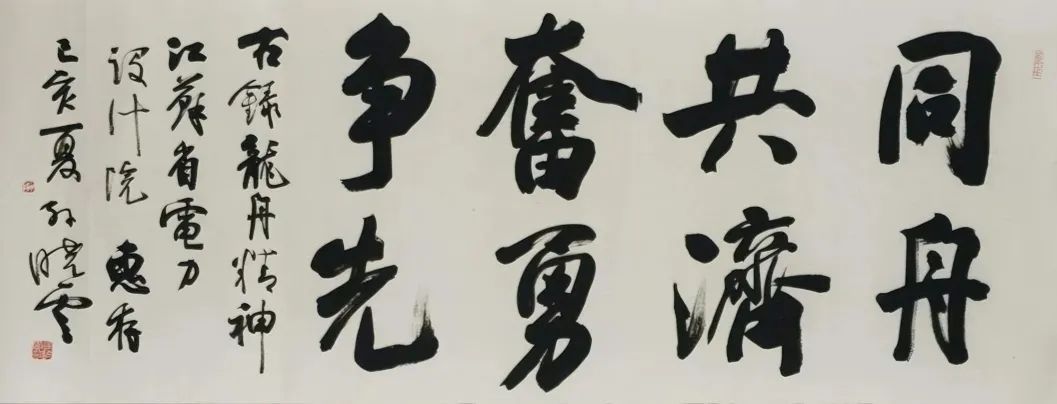 同舟
共濟
奮勇
争先
右錄龍舟精神
江蘇省電力
設计院 惠存
己亥夏 孙曉雲